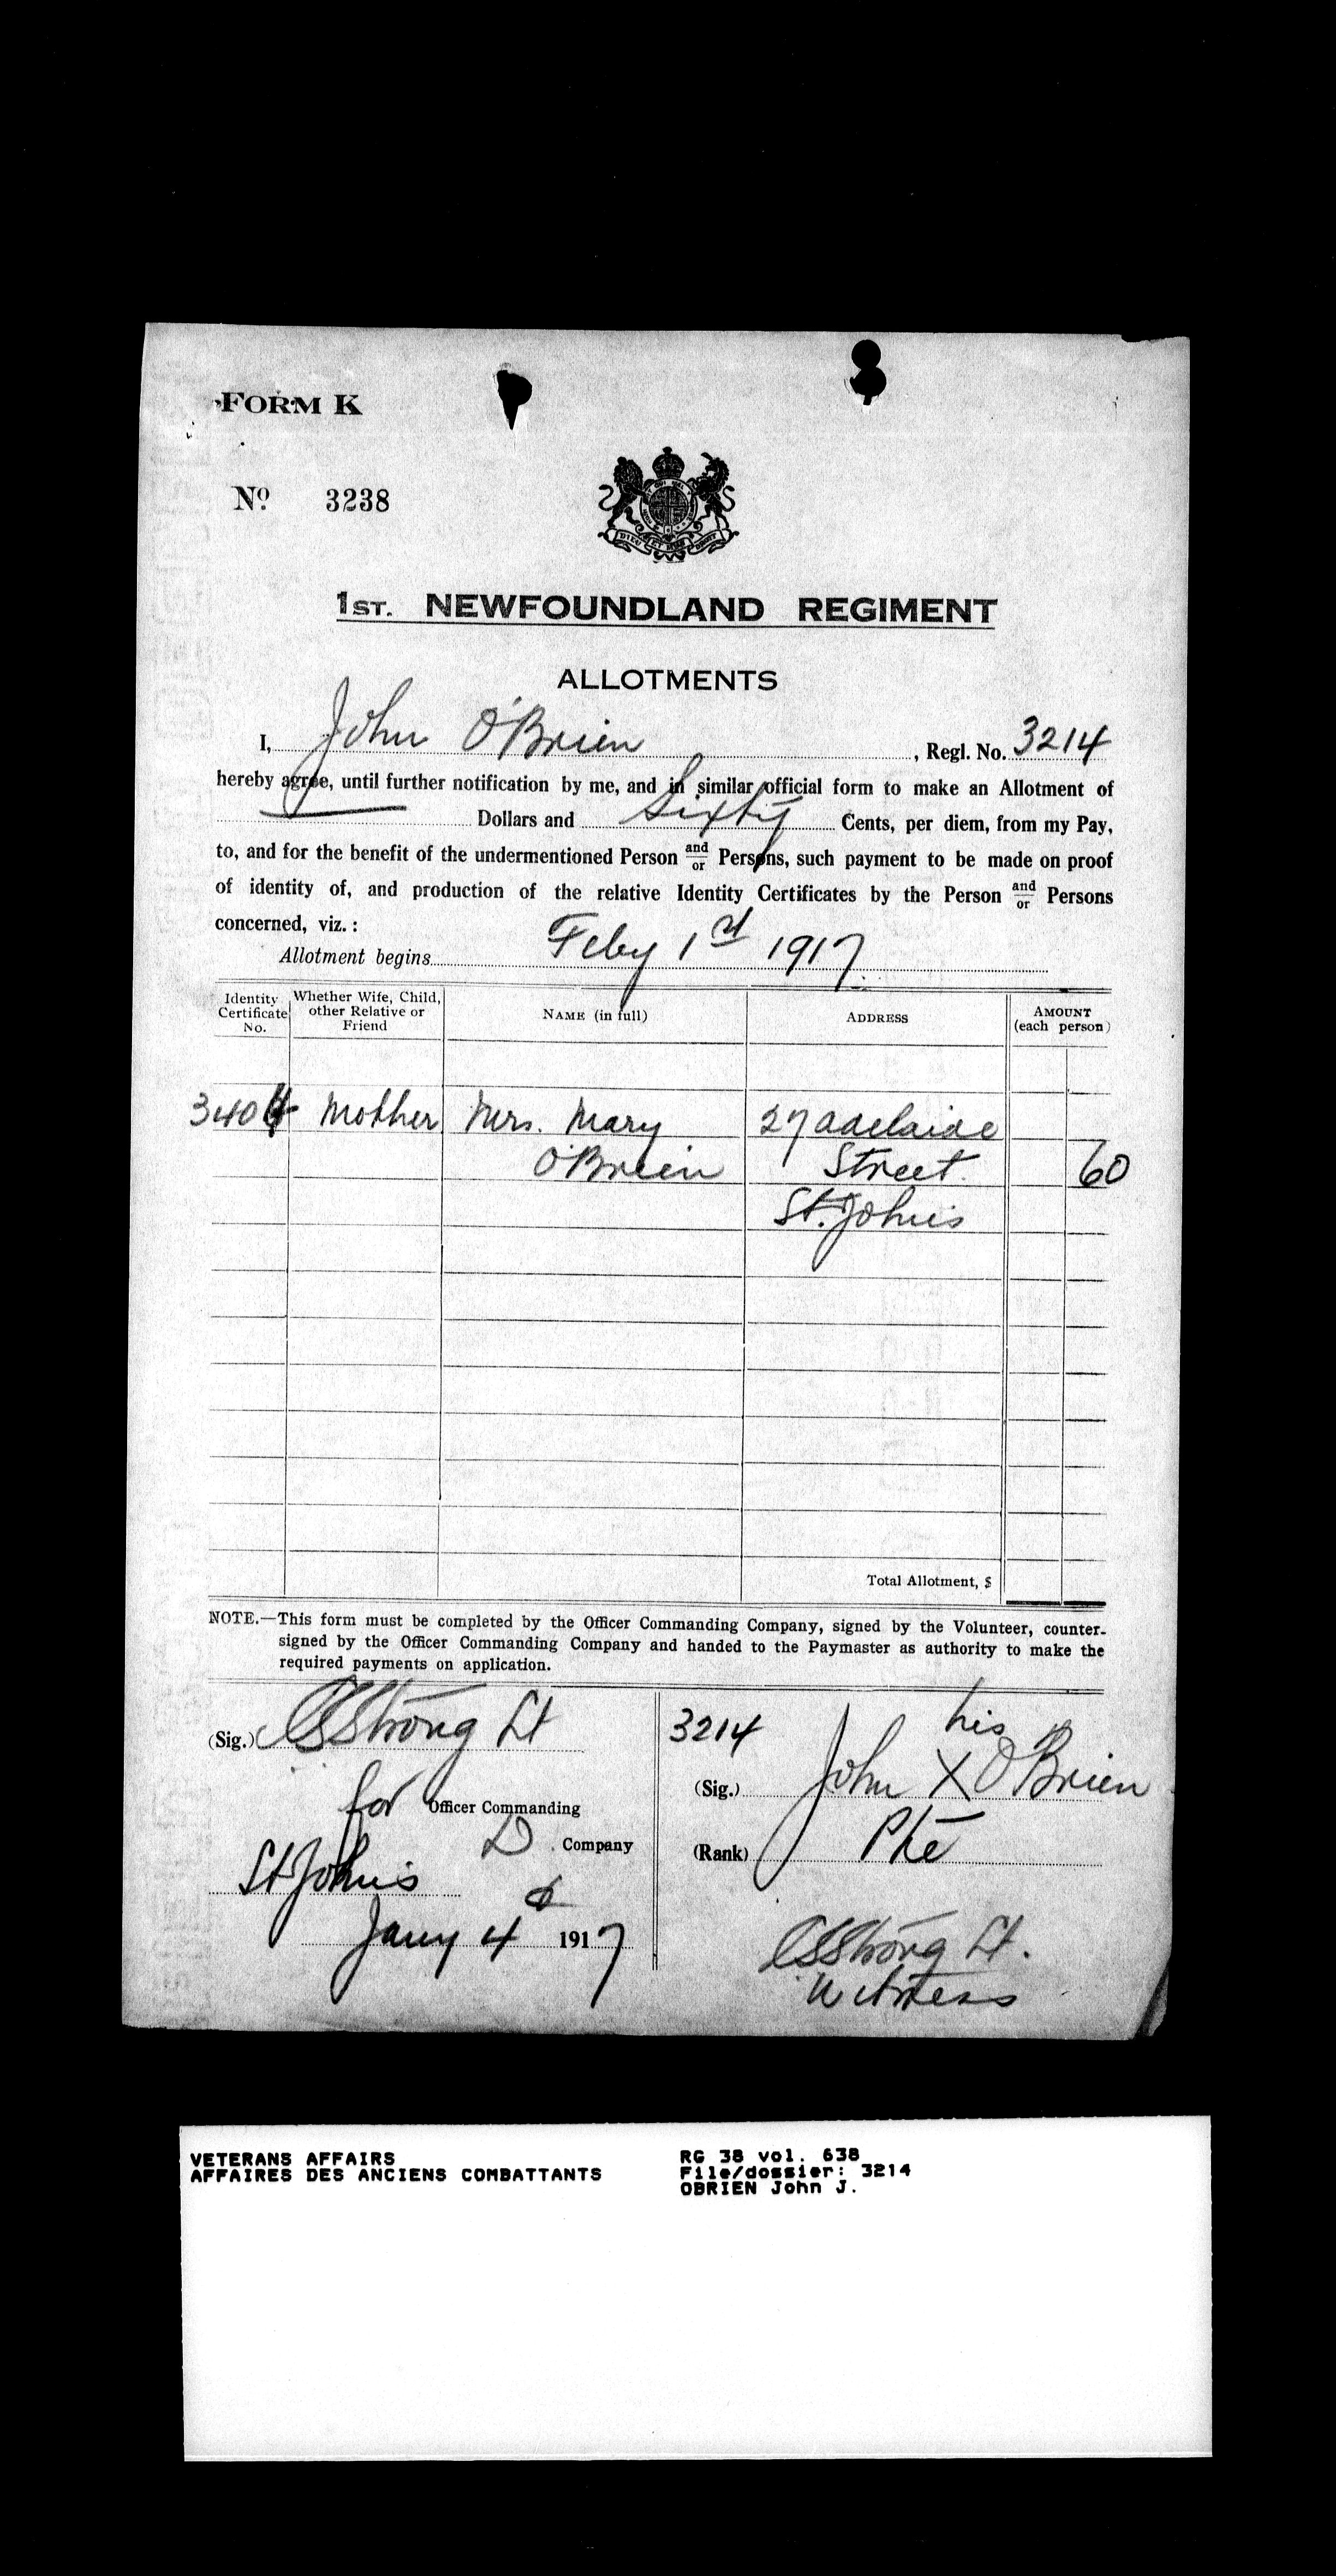 FORM K
No. 3238
DIEU ET MON DROIT
1ST. NEWFOUNDLAND REGIMENT
ALLOTMENTS
I, John O'Brien, Regl. No. 3214
hereby agree, until further notification by me, and in similar official form to make an Allotment of
— Dollars and Sixty Cents, per diem, from my Pay,
to, and for the benefit of the undermentioned Person and/or Persons, such payment to be made on proof
of identity of, and production of the relative Identity Certificates by the Person and/or Persons
concerned, viz.:
Allotment begins Feby 1st 1917.
Identity Certificate No. Whether Wife, Child, other Relative or Friend NAME (in full) ADDRESS AMOUNT (each person)
Mother Mrs. Mary 27 Adelaide
O'Brien Street. 60
St. John's
Total Allotment, $
NOTE.—This form must be completed by the Officer Commanding Company, signed by the Volunteer, counter-
signed by the Officer Commanding Company and handed to the Paymaster as authority to make the
required payments on application.
(Sig.) CSStrong Lt
for Officer Commanding
D. Company
St John's
Jany 4 1917
3214 his
(Sig.) John X O'Brien
(Rank) Pte
CSStrong Lt.
Witness
VETERANS AFFAIRS
AFFAIRES DES ANCIENS COMBATTANTS
RG 38 vol. 638
File/dossier: 3214
OBRIEN John J.